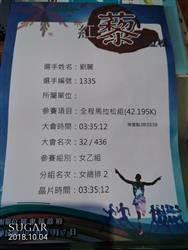 紅藜
選手姓名：劉麗
選手編號：1335
所屬單位：
參賽項目：全程馬拉松組(42.195K)
大會時間：03:35:12
大會名次：32 / 436
參賽組別：女乙組
分組名次：女總排 2
晶片時間：03:35:12
SUGAR
2018.10.04